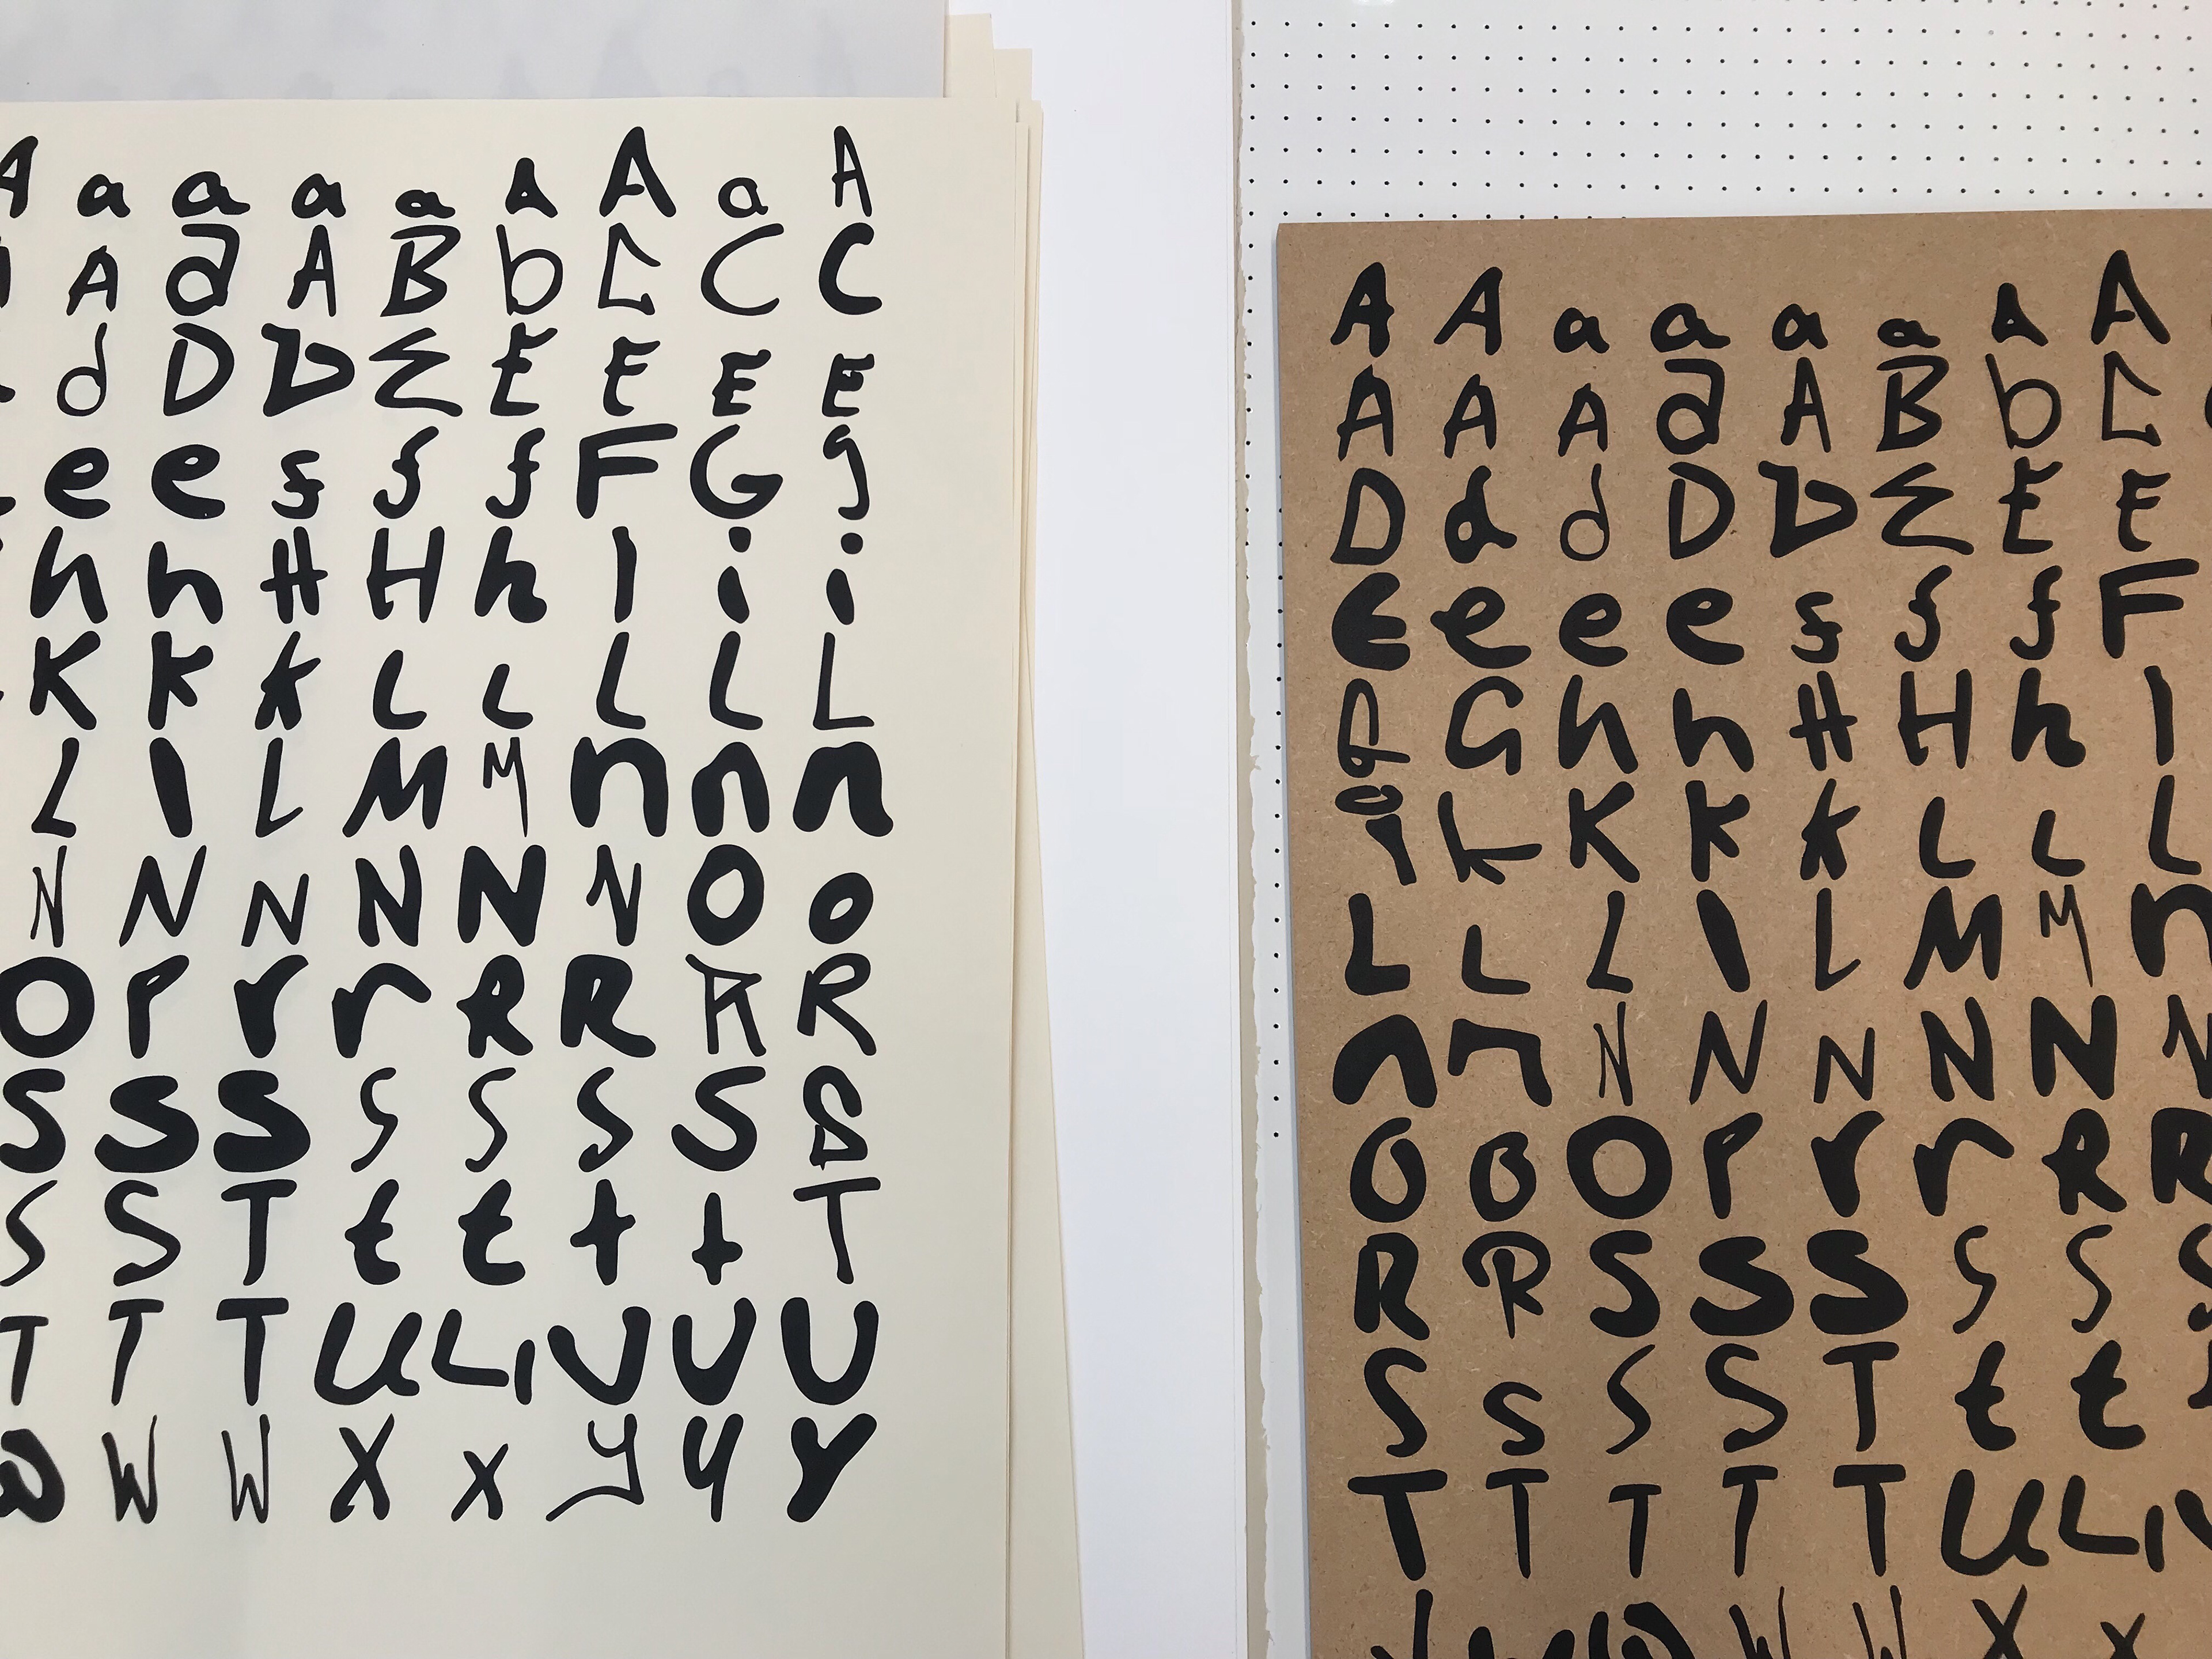 A a a a a A A a A
A a A B b C C C
d D D E E E E E
e e s f f F G g
h h H H h I i i
K K k L L L L L
L l L M M n n n
N N N N N N O o
O P r r R R R R
S S S S S S S S
S S T t t t t T
T T T U U U U U
W W X x y y Y
A A a a a a A A
A A A a A B b C
D d d D D E E E
e e e e s f f F
g G h h H H h I
i k K K k L L L
L L L l L M M n
n n N N N N N N
O O O P r r R R
R R S S S S S S
S s S S T t t
T T T T T U U
W W X x